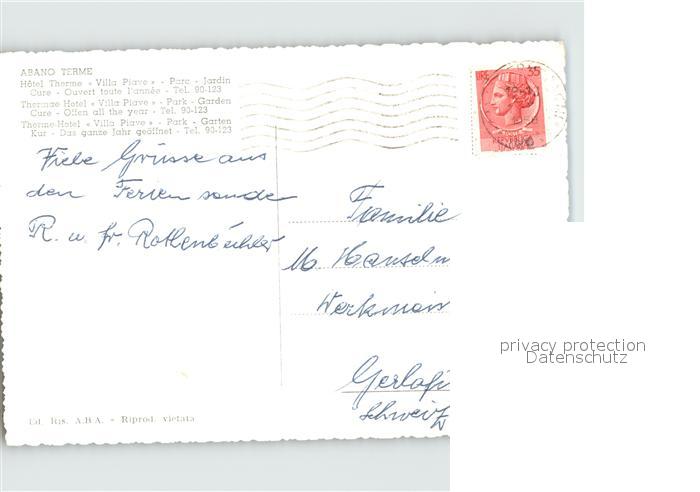 ABANO TERME
Hôtel Therme « Villa Piave » - Parc - Jardin
Cure - Ouvert toute l'année - Tel. 90-123
Thermae Hotel « Villa Piave » - Park - Garden
Cure - Offen all the year - Tel. 90-123
Therme-Hotel « Villa Piave » - Park - Garten
Kur - Das ganze Jahr geöffnet - Tel. 90-123
LIRE 35
Viele Grüsse aus
den Ferien sende
R. u. fr. Rothenbühler
Familie
Werkmeis
Gerlafi
Schweiz
privacy protection
Datenschutz
Ed. Ris. A.B.A. - Riprod. vietata